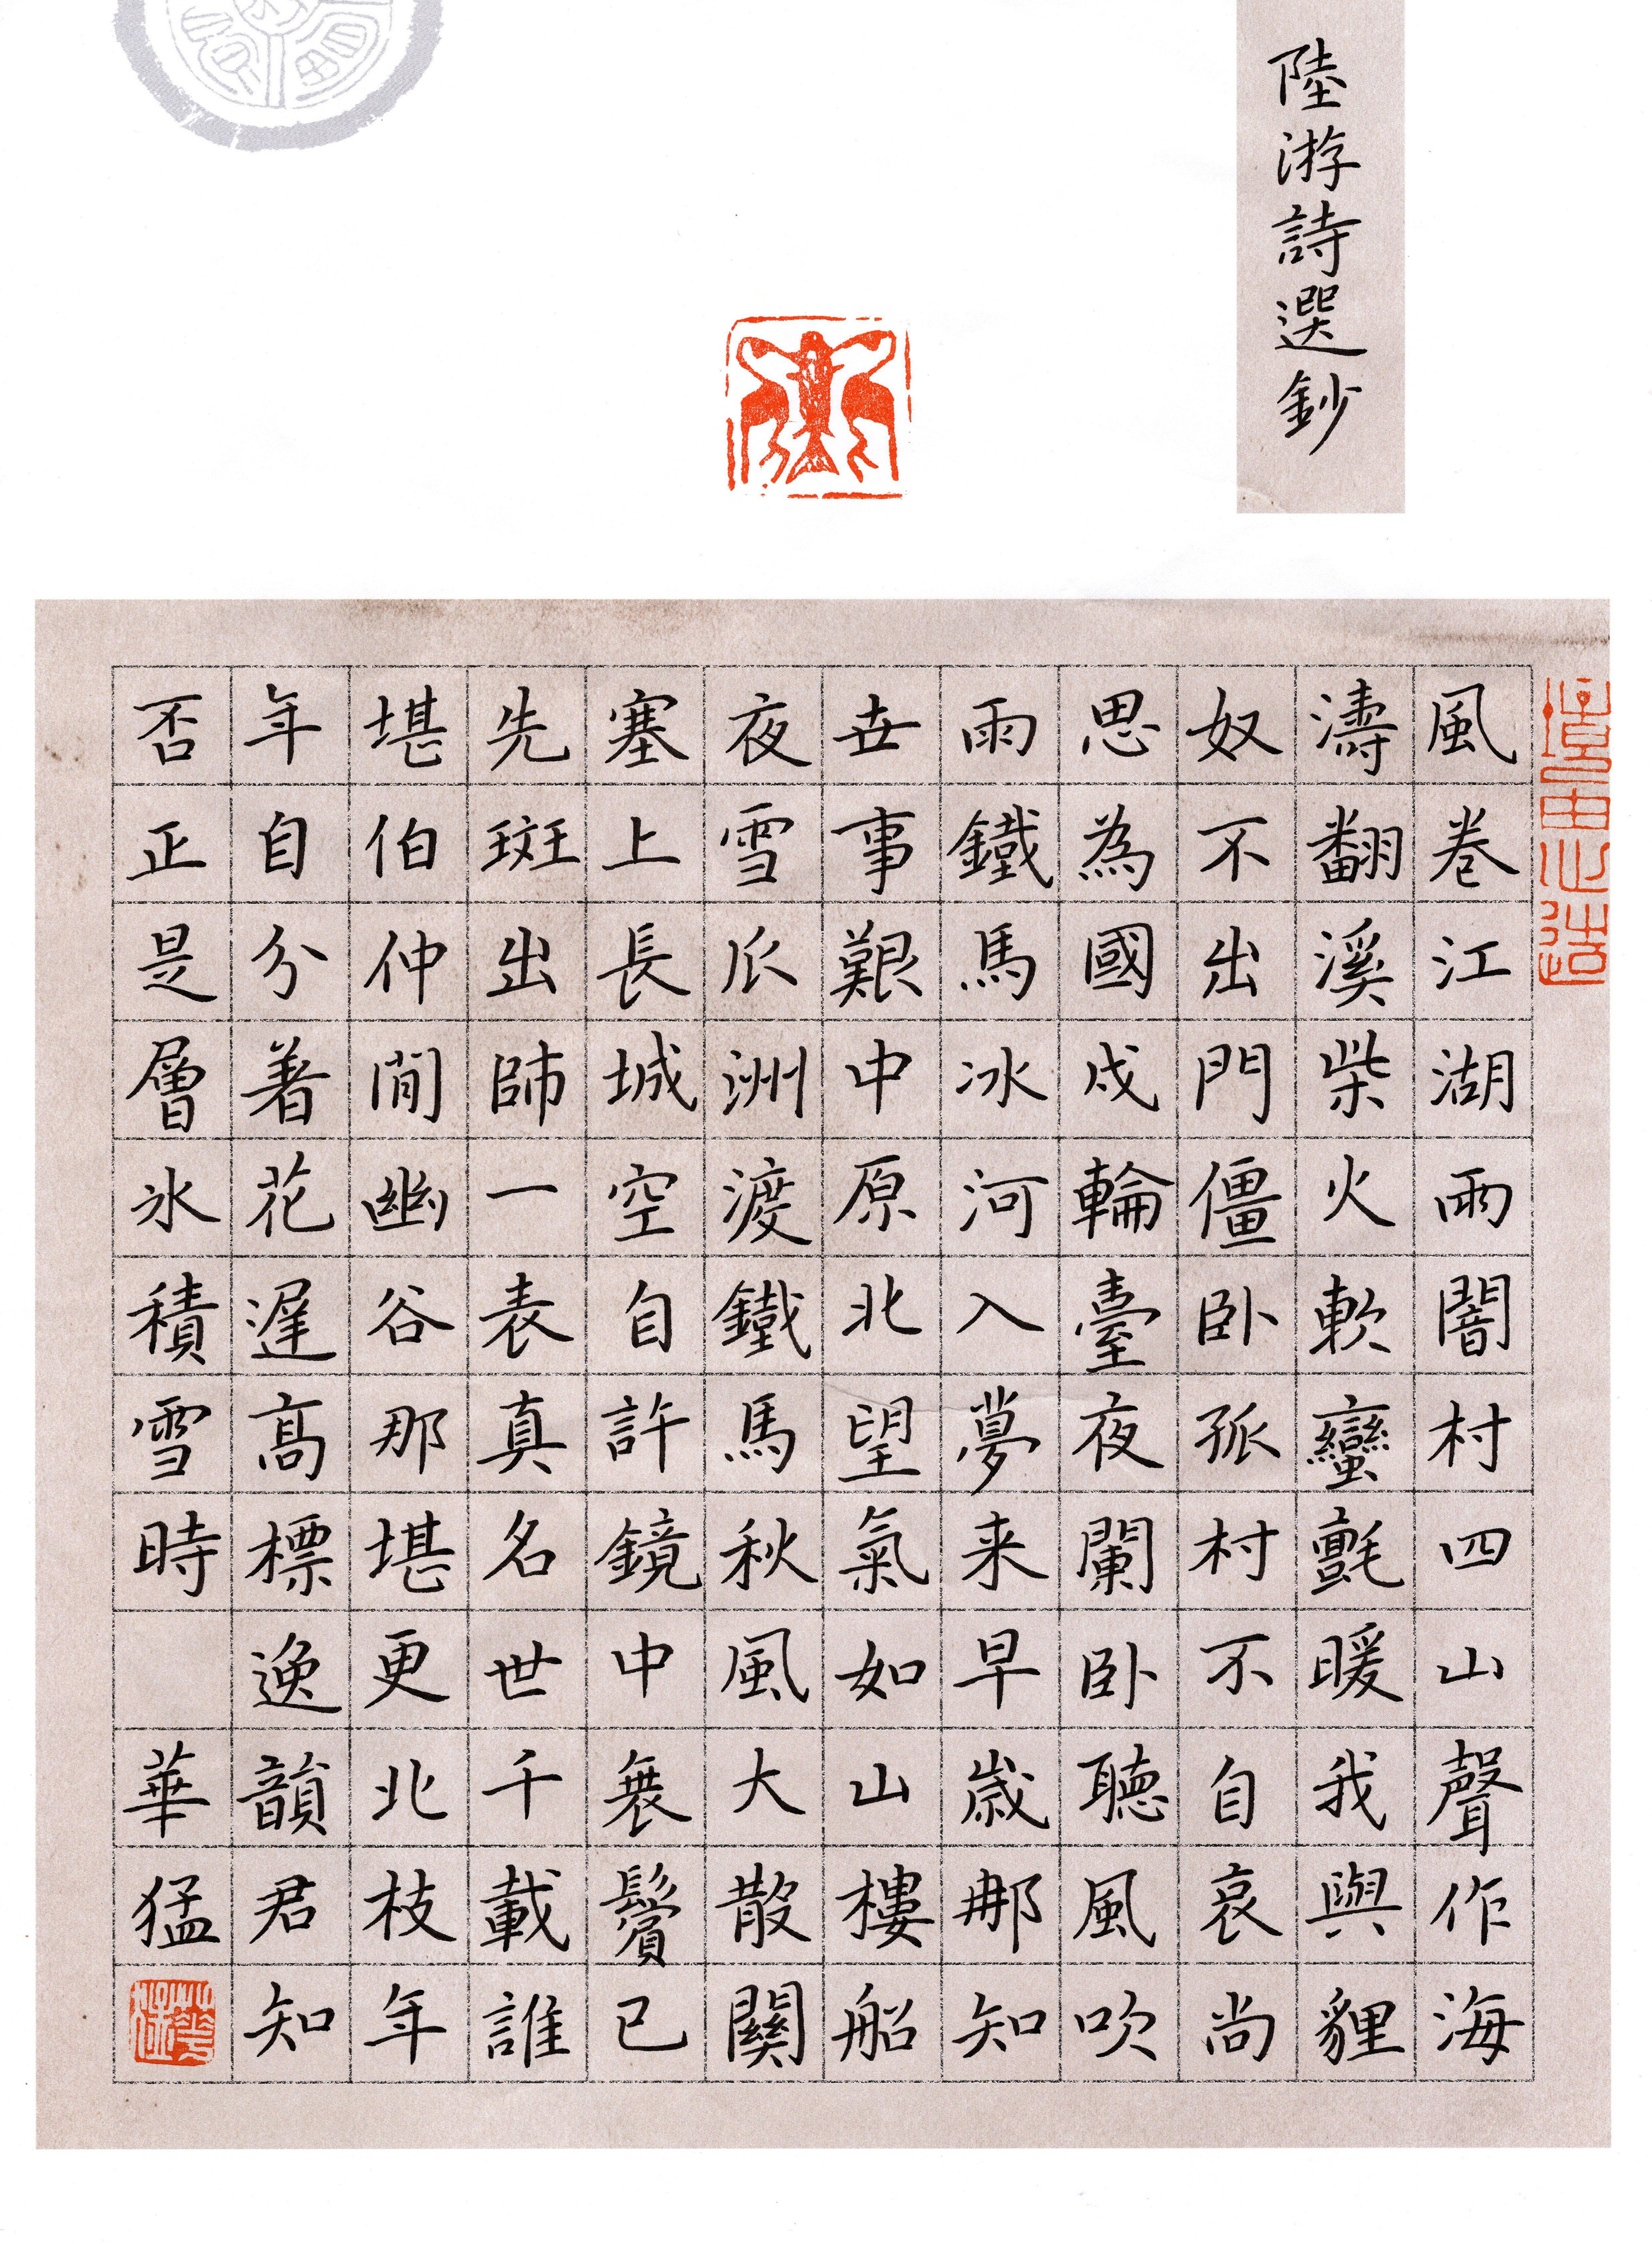 陸游詩選鈔
風卷江湖雨闇村四山聲作海
濤翻溪柴火軟蠻氈暖我與貍
奴不出門僵卧孤村不自哀尚
思為國戍輪臺夜闌卧聽風吹
雨鐵馬冰河入夢来早歲那知
世事艱中原北望氣如山樓船
夜雪瓜洲渡鐵馬秋風大散關
塞上長城空自許鏡中衰鬢已
先斑出師一表真名世千載誰
堪伯仲閒幽谷那堪更北枝年
年自分著花遲高標逸韻君知
否正是層冰積雪時 華猛